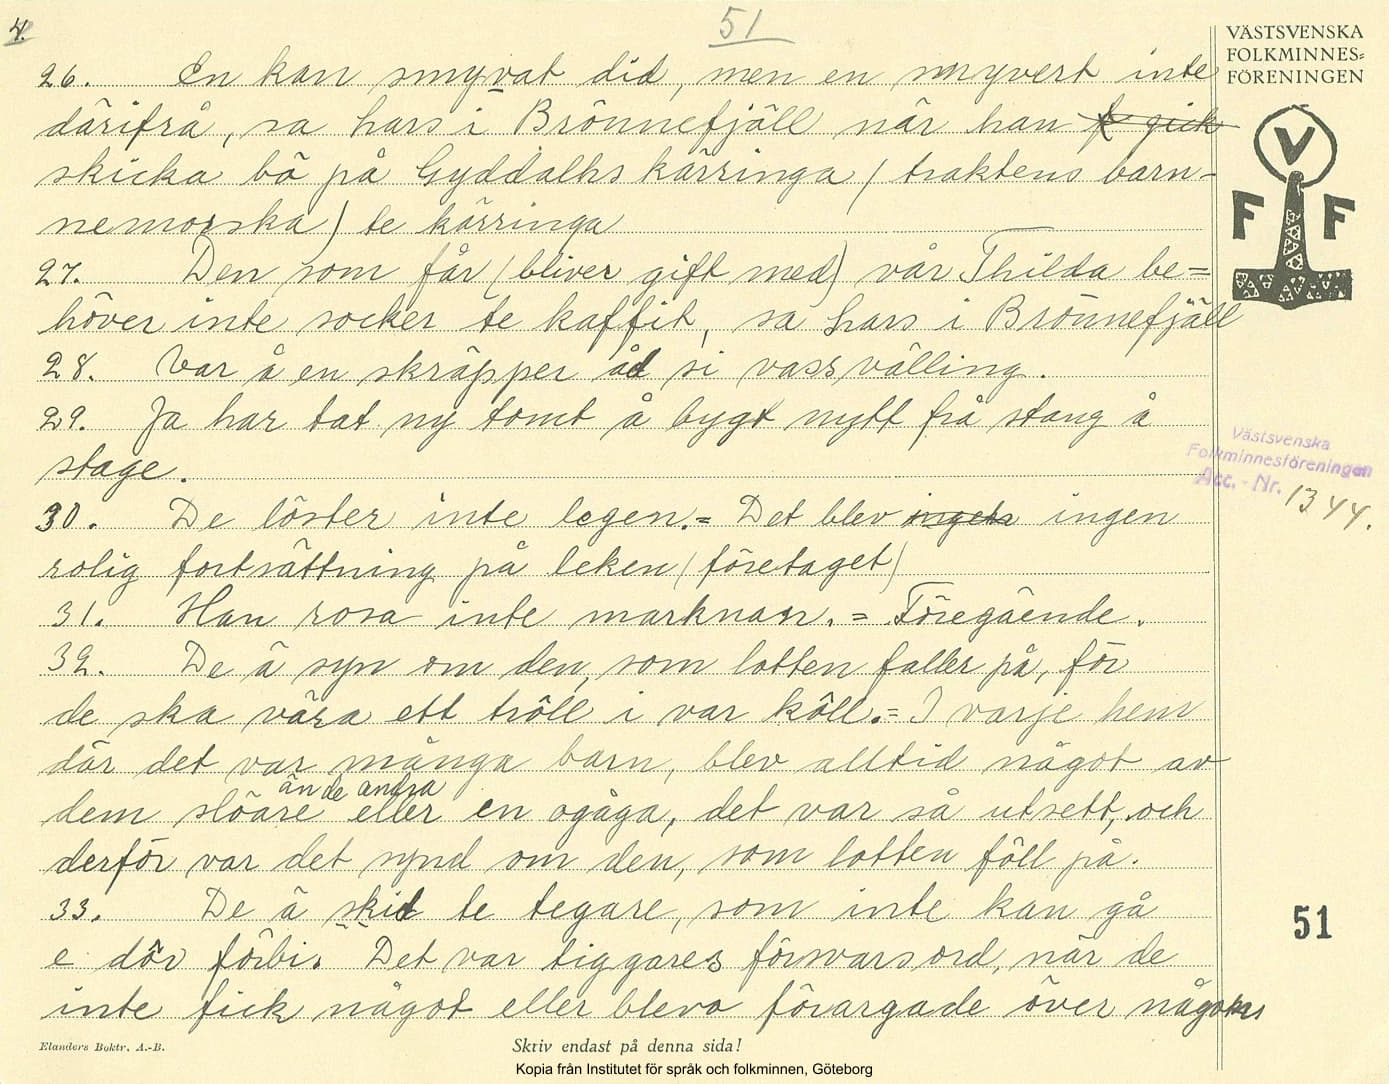 4.
51
VÄSTSVENSKA
FOLKMINNES=
FÖRENINGEN
26. En kan smyvat did, men en smyvert inte
därifrå, sa Lars i Brönnefjäll när han gick
skicka bö på Gyddalhs kärringa (traktens barn-
nemorska) te kärringa
27. Den som får (bliver gift med) vår Thilda be=
höver inte socker te kaffit, sa Lars i Brönnefjäll
28. Var å en skräpper åd si vassvälling.
29. Ja har tat ny tomt å bygt nytt frå stang å
stage.
30. De löster inte legen.= Det blev ingen ingen
rolig fortsättning på leken (företaget)
31. Han rosa inte marknan. = Föregående.
32. De ä syn om den, som lotten faller på, för
de ska våra ett tröll i var köll.= I varje hem
där det var många barn, blev alltid något av
dem slöare än de andra eller en ogåga, det var så utsett, och
derför var det synd om den, som lotten föll på.
33. De ä skid te tegare, som inte kan gå
e dör förbi. Det var tiggares försvarsord, när de
inte fick något eller blevo förargade över någons
V
F F
Västsvenska
Folkminnesföreningen
Acc. - Nr. 1344.
51
Elanders Boktr. A.-B.
Skriv endast på denna sida!
Kopia från Institutet för språk och folkminnen, Göteborg